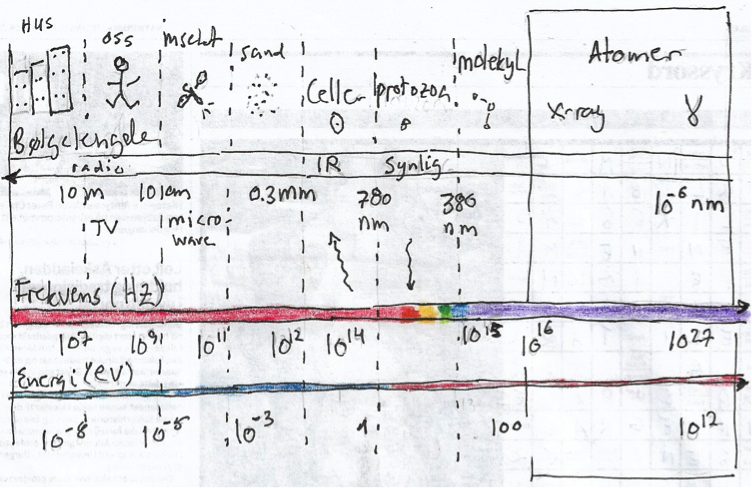 HUS oss insekt sand celler protozoa molekyl Atomer
x-ray γ
Bølgelengde
radio IR Synlig
10 m 10 cm 0.3 mm 780 nm 380 nm 10⁻⁶ nm
TV micro-wave
Frekvens (Hz)
10⁷ 10⁹ 10¹¹ 10¹² 10¹⁴ 10¹⁵ 10¹⁶ 10²⁷
Energi (eV)
10⁻⁸ 10⁻⁵ 10⁻³ 1 100 10¹²